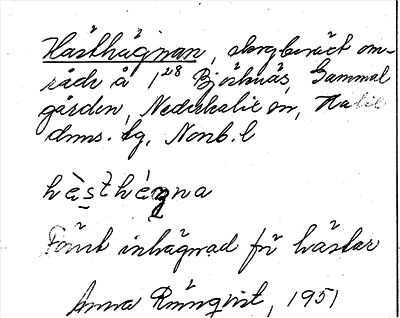 Hästhägnan, skogbeväxt om-
råde å 1²⁸ Björknäs, Gammel
gården, Nederkalix sn, Kalix
dmns. tg, Nonb. l
hästhägna
Förut inhägnad för hästar
Anna Rönnqvist, 1951